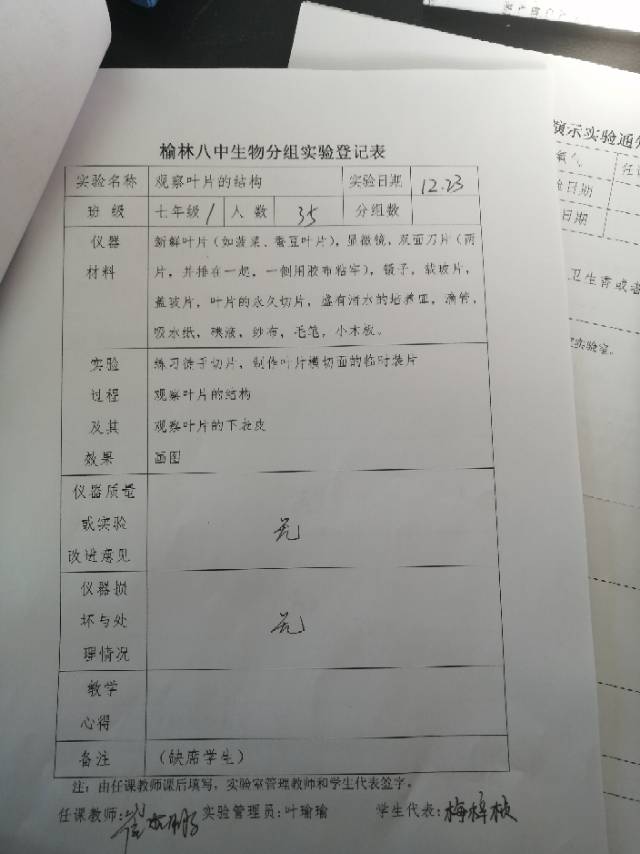 榆林八中生物分组实验登记表
实验名称 观察叶片的结构 实验日期 12.23
班 级 七年级1 人 数 35 分组数
仪器 新鲜叶片（如菠菜、蚕豆叶片），显微镜，双面刀片（两
材料 片，并排在一起，一侧用胶布粘牢），镊子，载玻片，
盖玻片，叶片的永久切片，盛有清水的培养皿，滴管，
吸水纸，碘液，纱布，毛笔，小木板。
实验 练习徒手切片，制作叶片横切面的临时装片
过程 观察叶片的结构
及其 观察叶片的下表皮
效果 画图
仪器质量
或实验 无
改进意见
仪器损
坏与处 无
理情况
教学
心得
备注 （缺席学生）
注：由任课教师课后填写，实验室管理教师和学生代表签字。
任课教师： 实验管理员：叶瑜瑜 学生代表：梅梓
演示实验通知
氧气
日期
日期
卫生膏或
实验室。